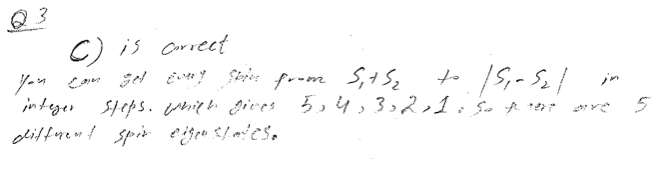 Q 3
C) is correct
You can get every spin from S₁+S₂ to |S₁-S₂| in
integer steps. which gives 5,4,3,2,1. So there are 5
different spin eigenstates.